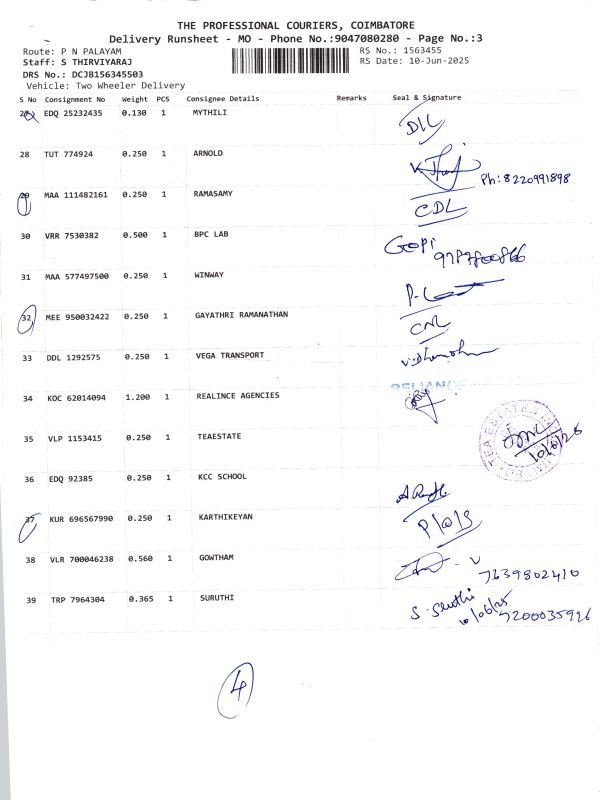 THE PROFESSIONAL COURIERS, COIMBATORE
Delivery Runsheet - MO - Phone No.:9047080280 - Page No.:3
Route: P N PALAYAM RS No.: 1563455
Staff: S THIRVIYARAJ RS Date: 10-Jun-2025
DRS No.: DCJB156345503
Vehicle: Two Wheeler Delivery
S No Consignment No Weight PCS Consignee Details Remarks Seal & Signature
27 EDQ 25232435 0.130 1 MYTHILI
28 TUT 774924 0.250 1 ARNOLD
Ph: 8220991898
29 MAA 111482161 0.250 1 RAMASAMY CDL
30 VRR 7530382 0.500 1 BPC LAB Gopi
31 MAA 577497500 0.250 1 WINWAY
32 MEE 950032422 0.250 1 GAYATHRI RAMANATHAN CNL
33 DDL 1292575 0.250 1 VEGA TRANSPORT
34 KOC 62014094 1.200 1 REALINCE AGENCIES RELIANCE
35 VLP 1153415 0.250 1 TEAESTATE TEA ESTATES
36 EDQ 92385 0.250 1 KCC SCHOOL
37 KUR 696567990 0.250 1 KARTHIKEYAN
38 VLR 700046238 0.560 1 GOWTHAM
7639802410
39 TRP 7964304 0.365 1 SURUTHI S. Sruthi
10/06/25
4